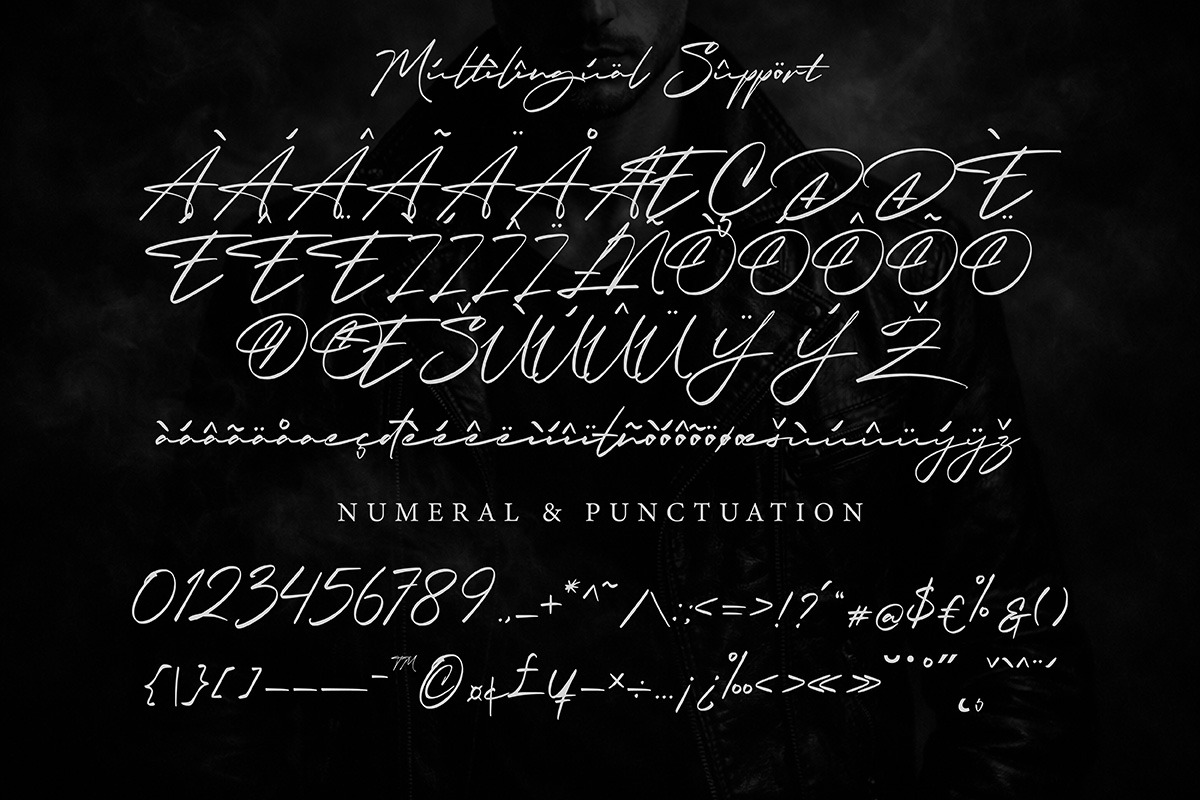 Múltîlîngúäl Sûppört
ÀÁÂÃÄÅÆÇÐĐÈ
ÉÊËÌÍÎÏŁÑÒÓÔÕÖ
ØŒŠÙÚÛÜŸÝŽ
àáâãäåæçđèéêëìíîïłñòóôõöøœšùúûüýÿž
NUMERAL & PUNCTUATION
0123456789.,_+*^~/\:;<=>!?´“#@$€%&()
{|}[]–—¯™©¤¢£¥−×÷…¡¿‰<>«»˘˙˚˝ˇ`^¨´